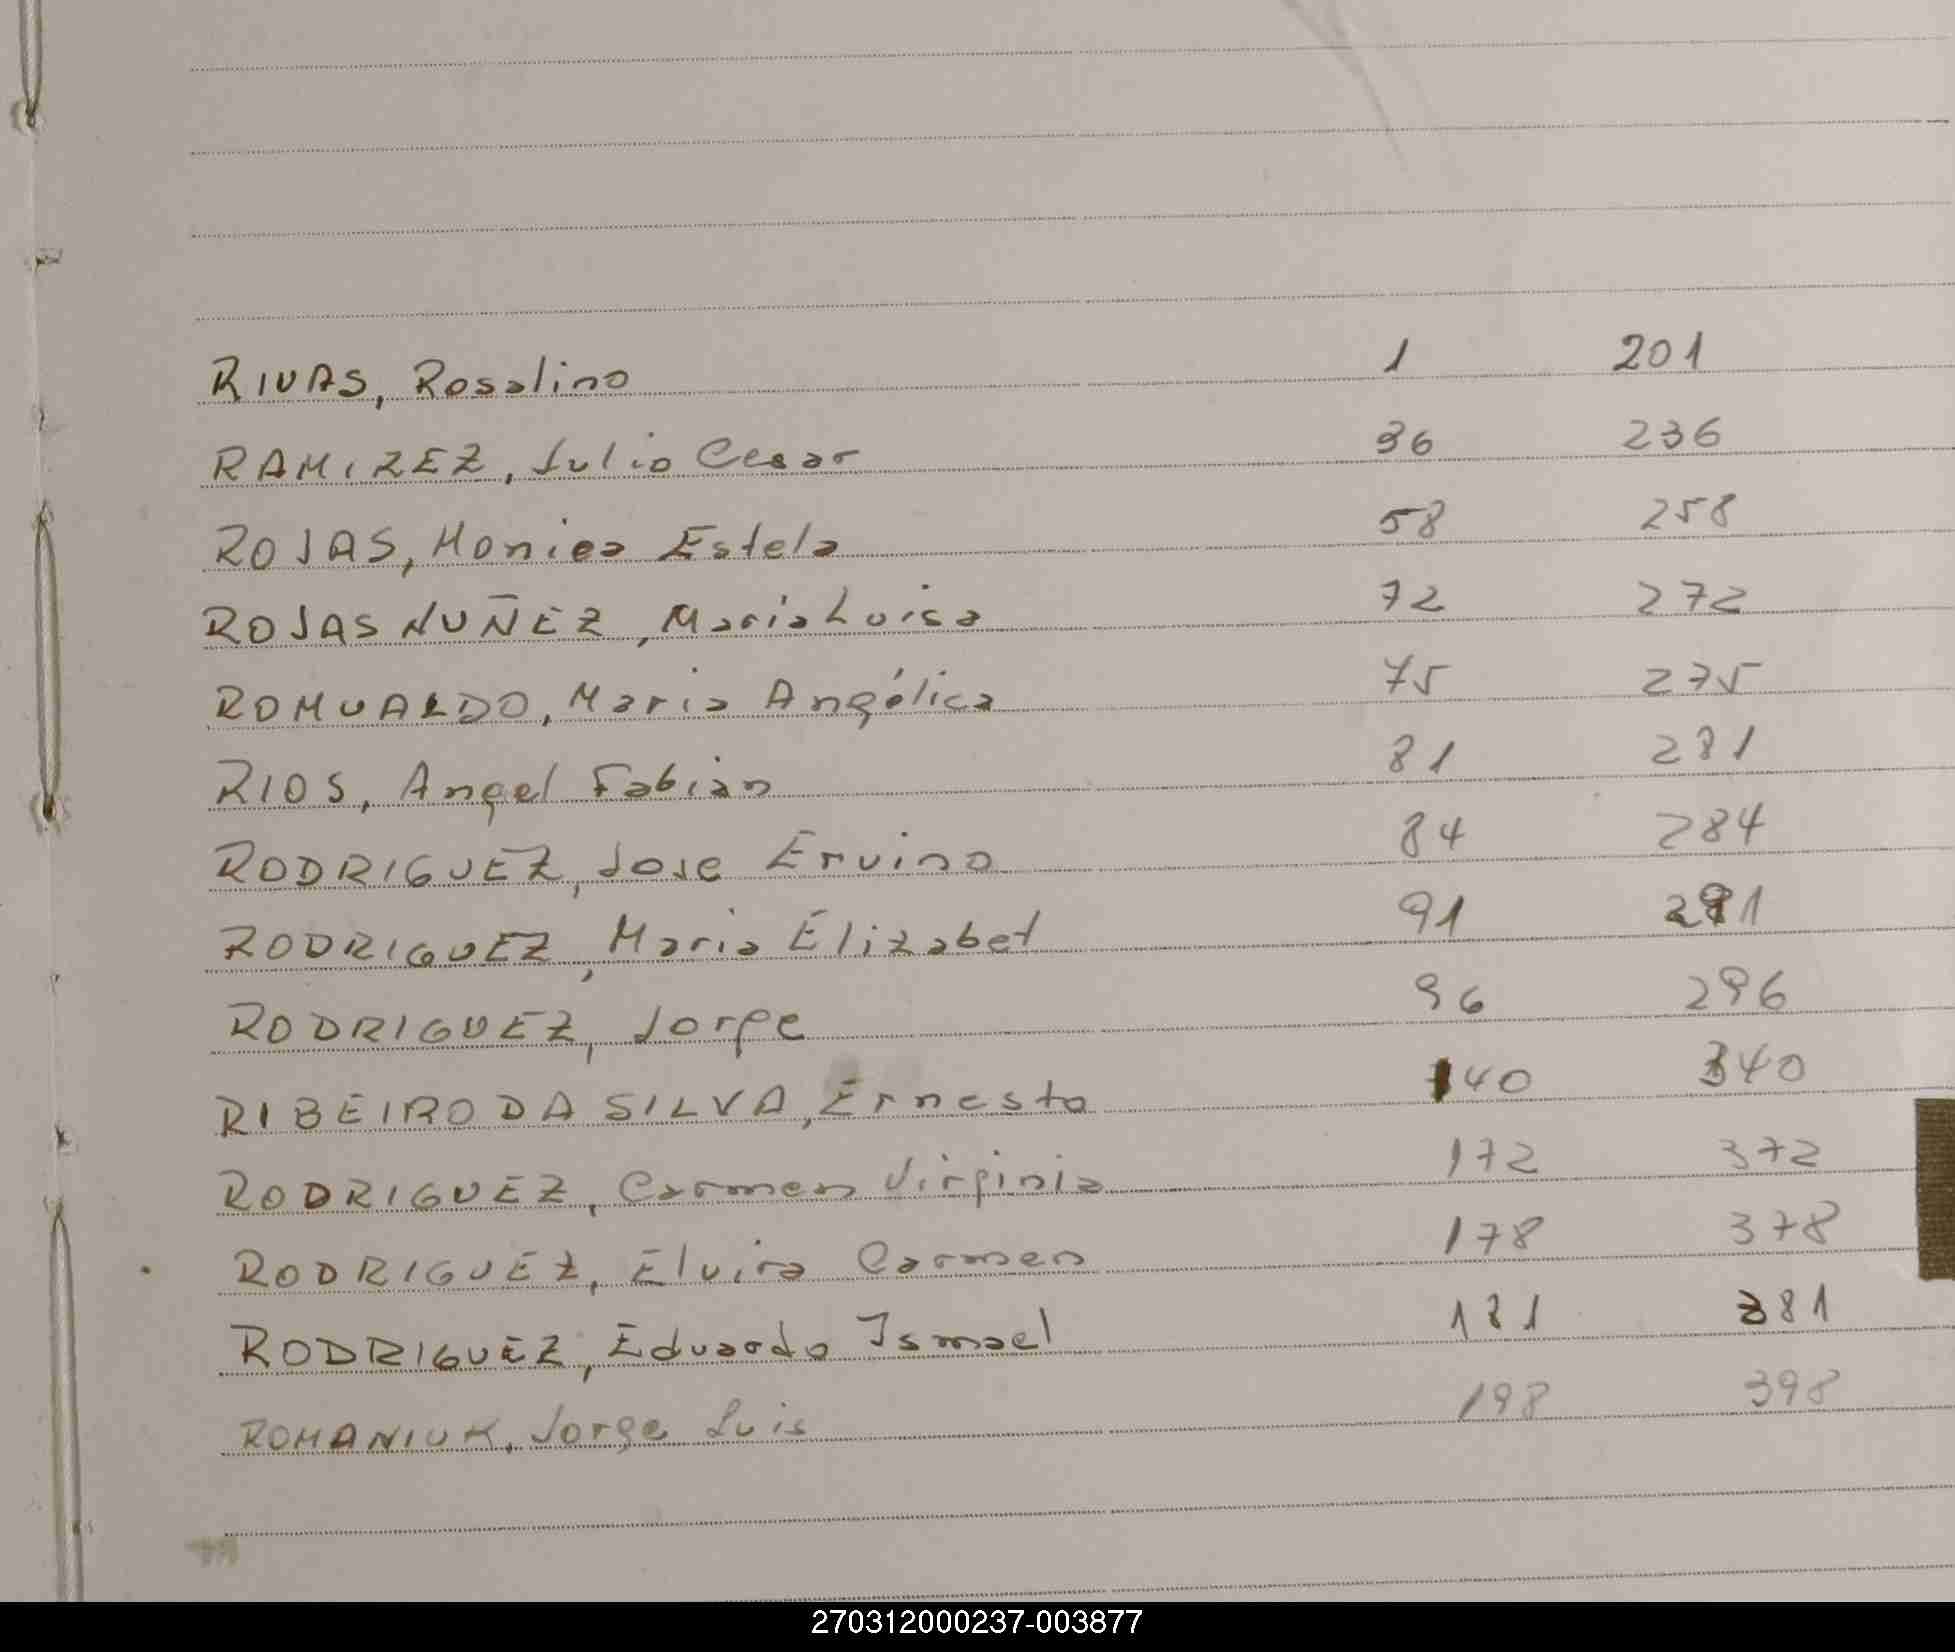 RIVAS, Rosalino 1 201
RAMIREZ, Julio Cesar 36 236
ROJAS, Monica Estela 58 258
ROJAS NUÑEZ, Maria Luisa 72 272
ROMUALDO, Maria Angélica 75 275
RIOS, Angel Fabian 81 281
RODRIGUEZ, Jose Ervino 84 284
RODRIGUEZ, Maria Elizabet 91 291
RODRIGUEZ, Jorge 96 296
RIBEIRO DA SILVA, Ernesto 140 340
RODRIGUEZ, Carmen Virginia 172 372
RODRIGUEZ, Elvira Carmen 178 378
RODRIGUEZ, Eduardo Ismael 181 381
ROMANIUK, Jorge Luis 198 398
270312000237-003877